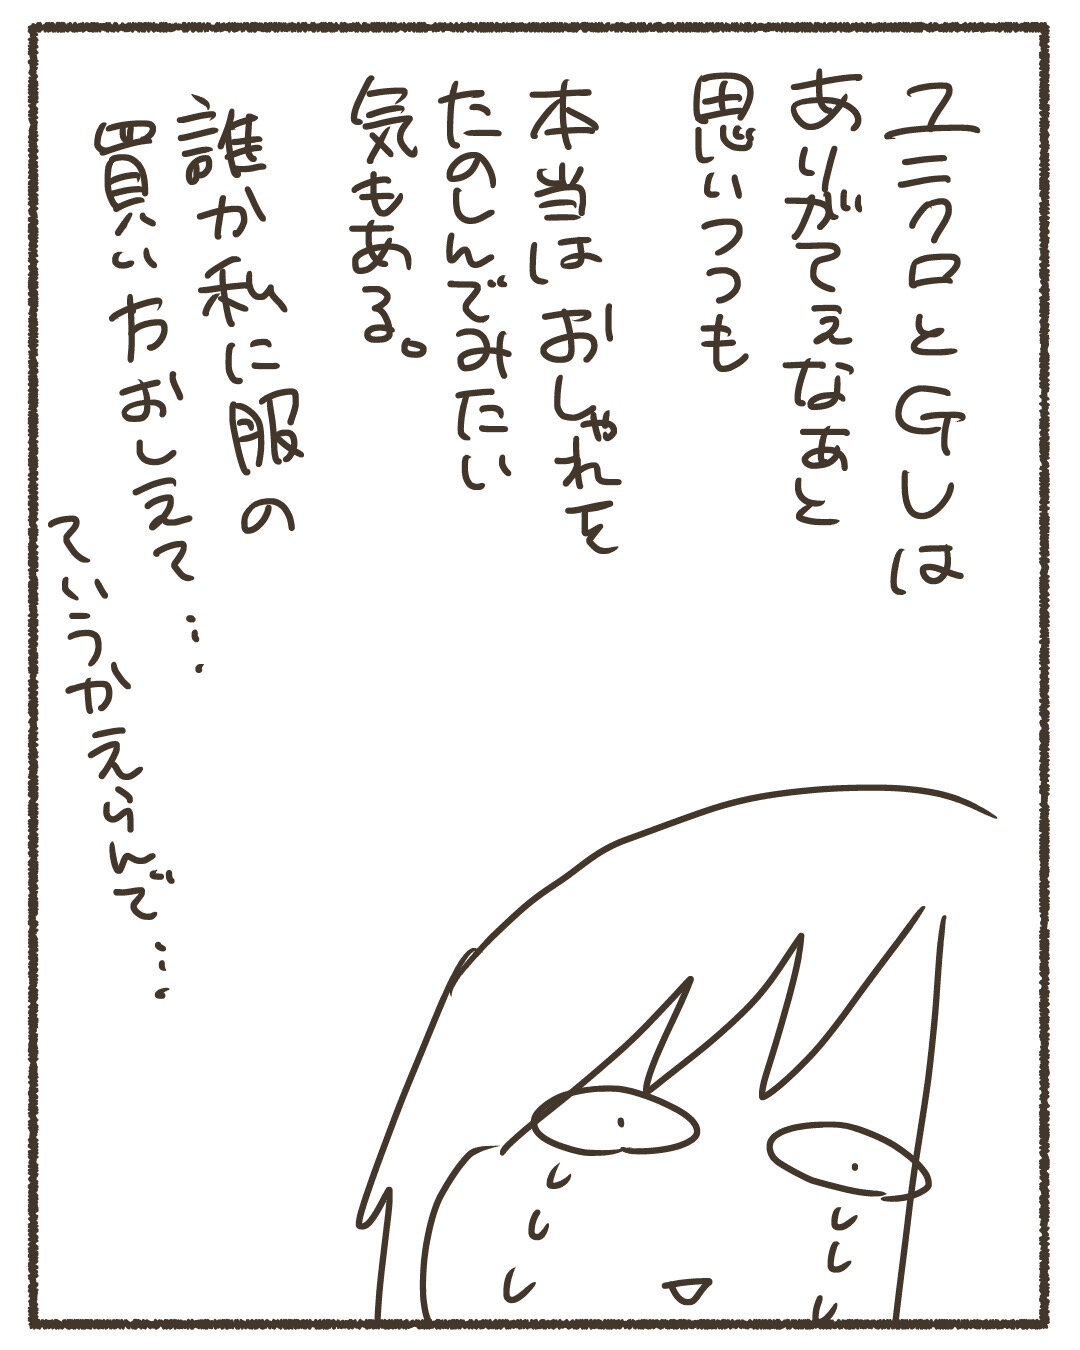 ユニクロとGUは
ありがてぇなぁと
思いつつも
本当はおしゃれを
たのしんでみたい
気もある。
誰か私に服の
買い方おしえて…
ていうかえらんで…